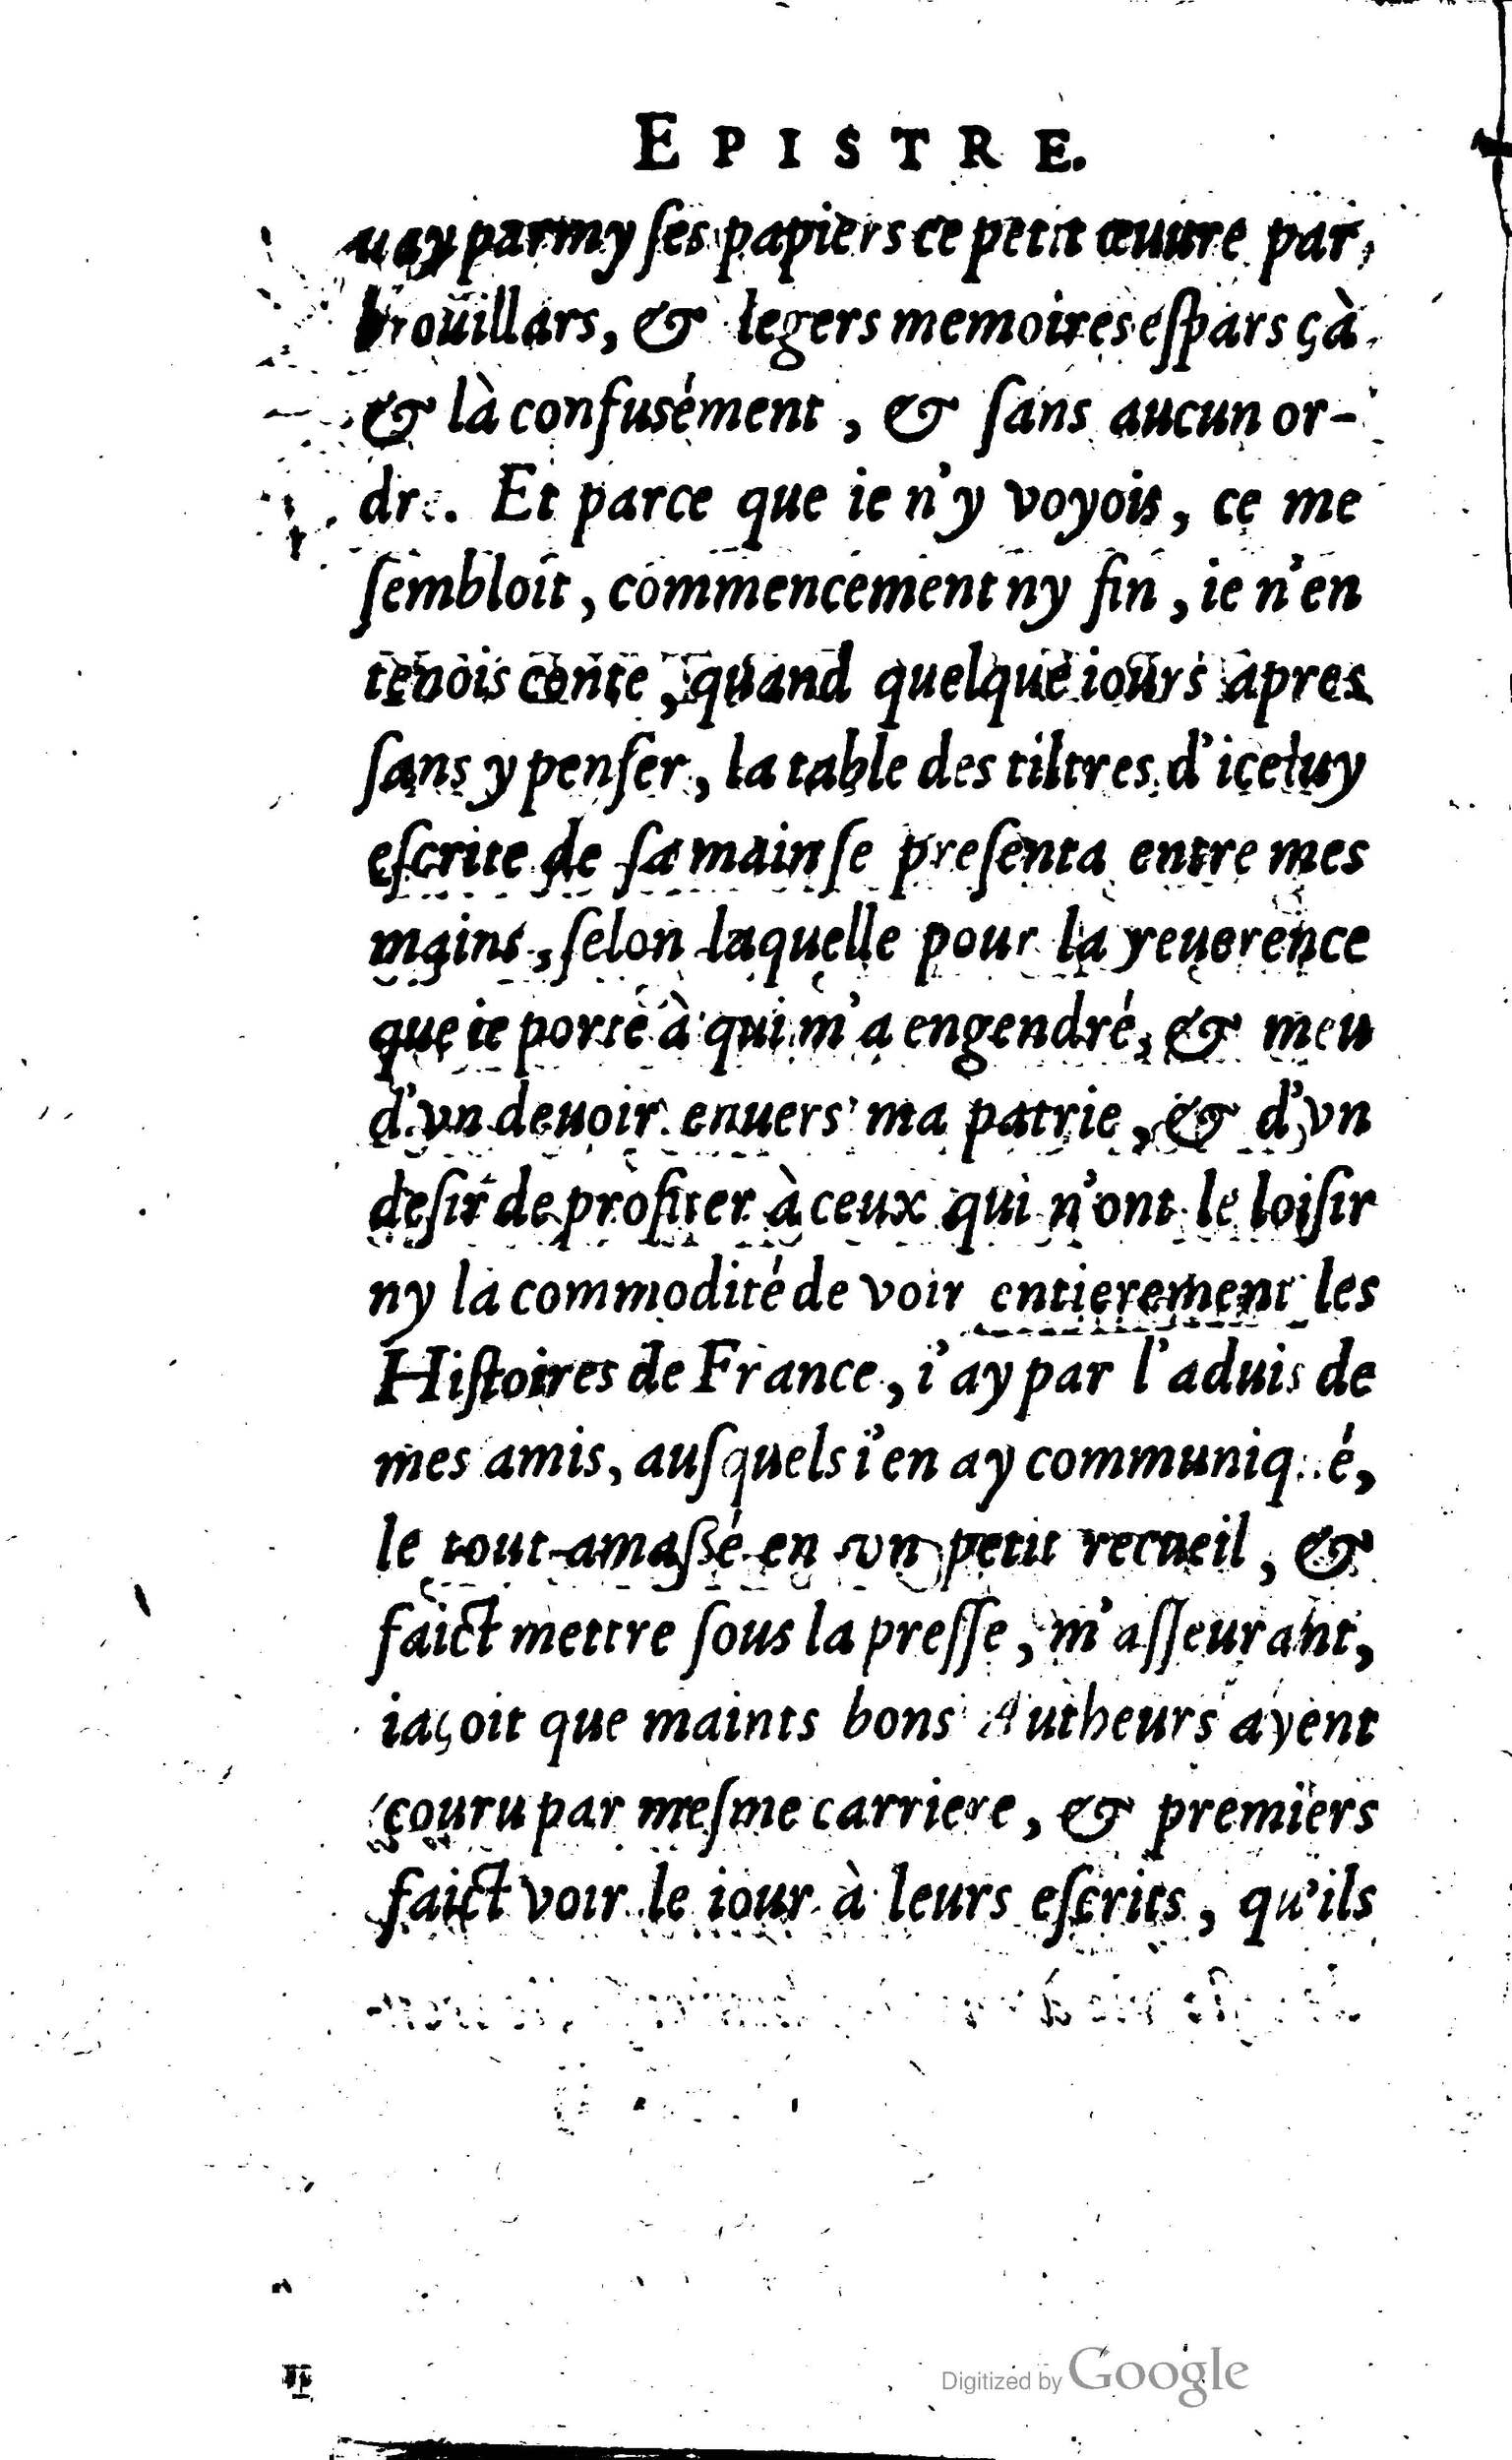 EPISTRE.
uay parmy ſes papiers ce petit œuure par
brouillars, & legers memoires eſpars çà
& là confusément, & ſans aucun or-
dre. Et parce que ie n'y voyois, ce me
ſembloit, commencement ny fin, ie n'en
tenois conte, quand quelque iours apres
ſans y penſer, la table des tiltres d'iceluy
eſcrite de ſa main ſe preſenta entre mes
mains, ſelon laquelle pour la reuerence
que ie porte à qui m'a engendré, & meu
d'vn deuoir enuers ma patrie, & d'vn
deſir de profiter à ceux qui n'ont le loiſir
ny la commodité de voir entierement les
Hiſtoires de France, i'ay par l'aduis de
mes amis, auſquels i'en ay communiqué,
le tout amaſſé en vn petit recueil, &
faict mettre ſous la preſſe, m'aſſeurant,
iaçoit que maints bons Autheurs ayent
couru par meſme carriere, & premiers
faict voir le iour à leurs eſcrits, qu'ils
Digitized by Google